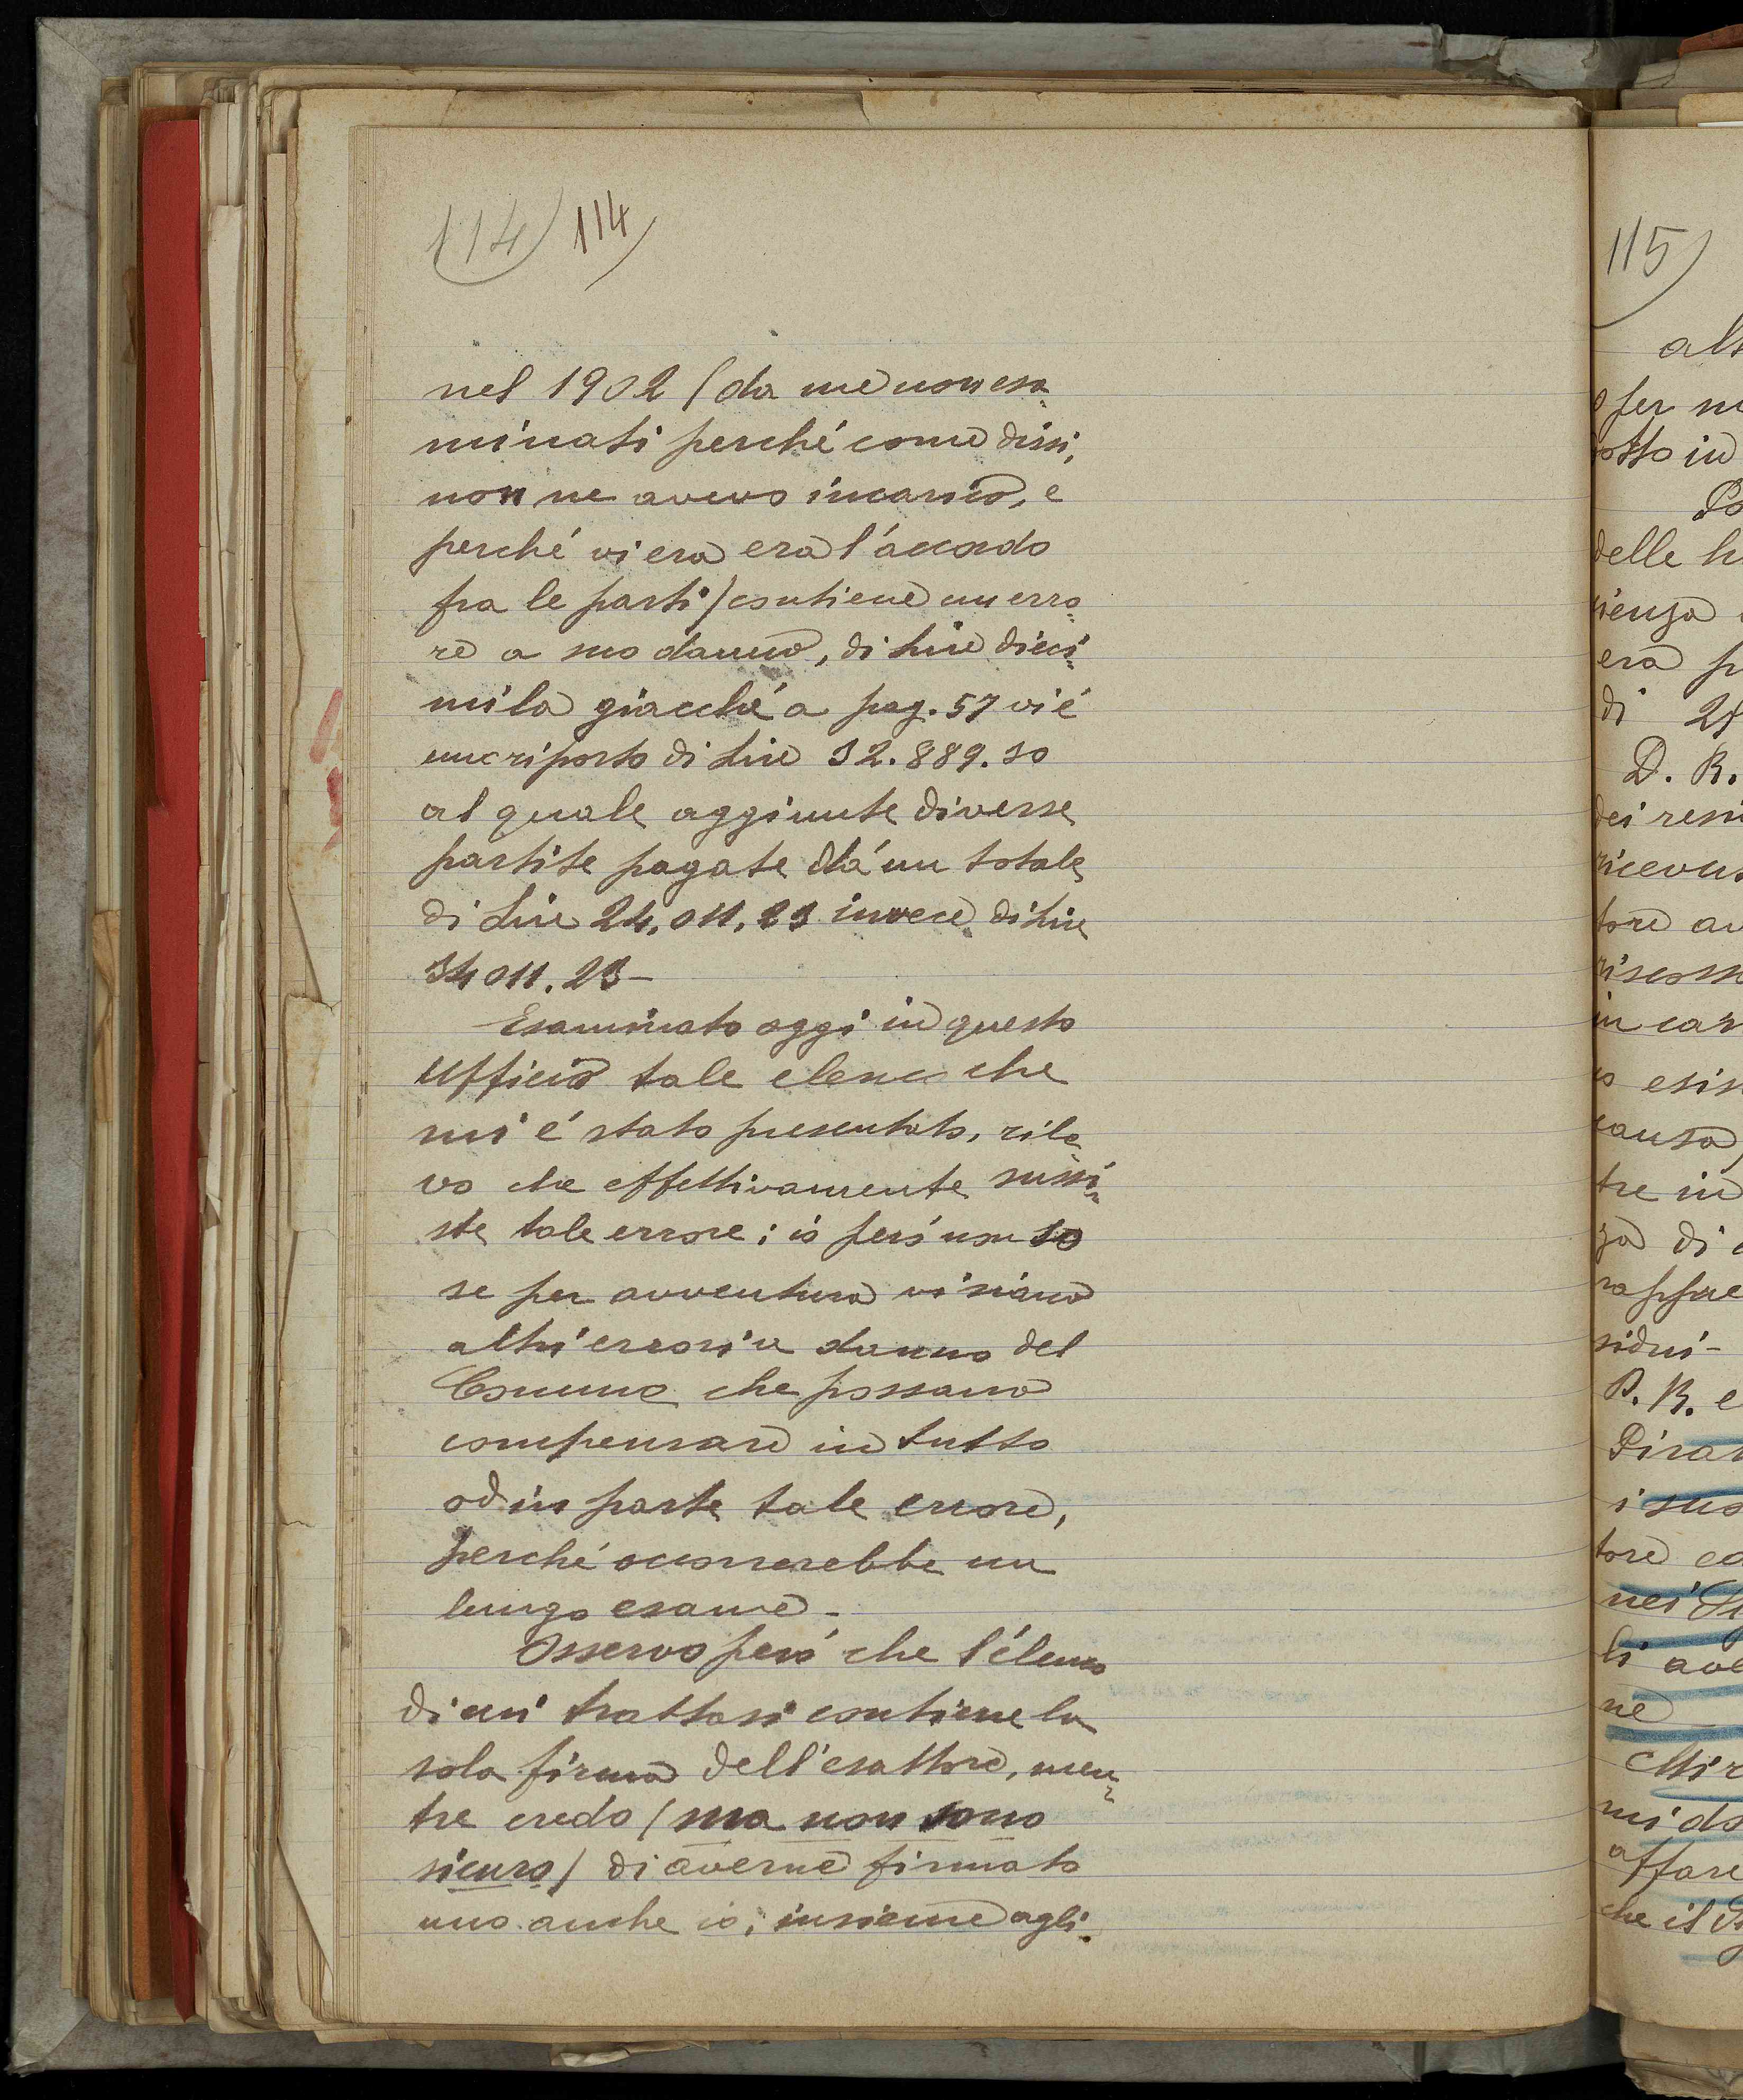 114) 114)
nel 1902 (da me non esa-
minati perché come dissi,
non ne avevo incarico, e
perché vi era era l'accordo
fra le parti) contiene un erro-
re a suo danno, di lire dieci-
mila giacché a pag. 57 vi é
un riporto di Lire 32.889.30
al quale aggiunte diverse
partite pagate dà un totale
di Lire 24.011,23 invece di Lire
34011.23-
Esaminato oggi in questo
Ufficio tale elenco che
mi é stato presentato, rile-
vo che effettivamente sussi-
ste tale errore; io però non so
se per avventura vi siano
altri errori a danno del
Comune che possano
compensare in tutto
od in parte tale errore,
perché occorrerebbe un
lungo esame-
Osservo però che l'elenco
di cui trattasi contiene la
sola firma dell'esattore, men-
tre credo (ma non sono
sicuro) di averne firmato
uno anche io, insieme agli
115)
per
otto in
delle
ienza
era
di
D. R.
dei resi
ricevu
tore av
riscoss
in car
esis
causa,
tre in
za di
rappre
sidui-
D. R. e
Pirat
i suo
tore
nei
li ave
ne
mi
affare
che il